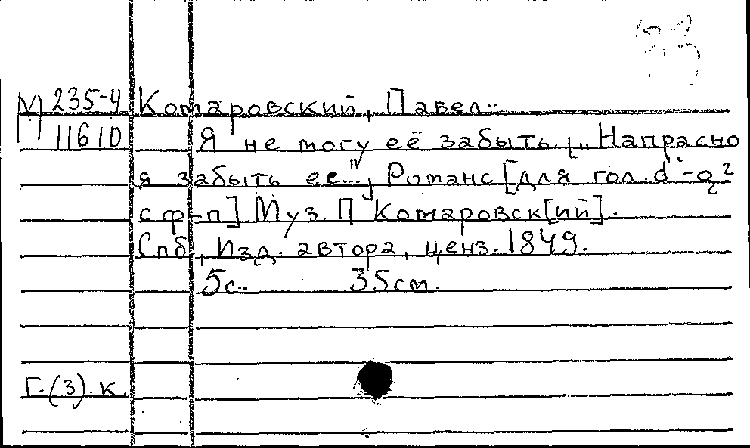 М 235-4 Комаровский, Павел.
11610 Я не могу её забыть („Напрасно
я забыть ее..."). Романс [для гол. d¹-g²
с ф-п] Муз. П Комаровск[ий].
Спб, Изд. автора, ценз. 1849.
5с. 35см.
Г.(3).к.